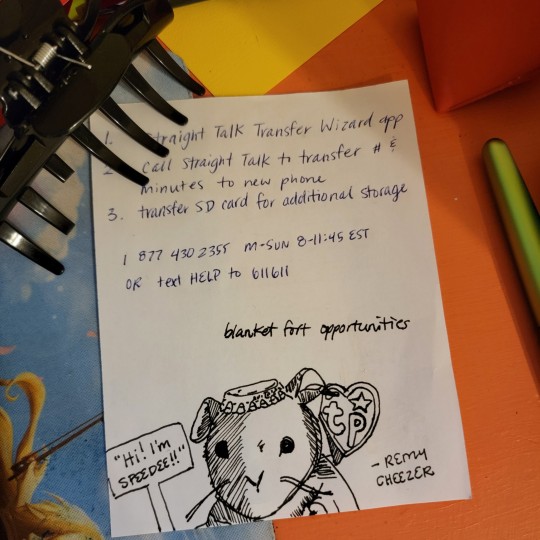 1. Straight Talk Transfer Wizard app
2. Call Straight Talk to transfer # &
minutes to new phone
3. transfer SD card for additional storage
1 877 430 2355 M-SUN 8-11:45 EST
OR text HELP to 611611
blanket fort opportunities
"Hi! I'm
SPEEDEE!!"
tp
- REMY
CHEEZER